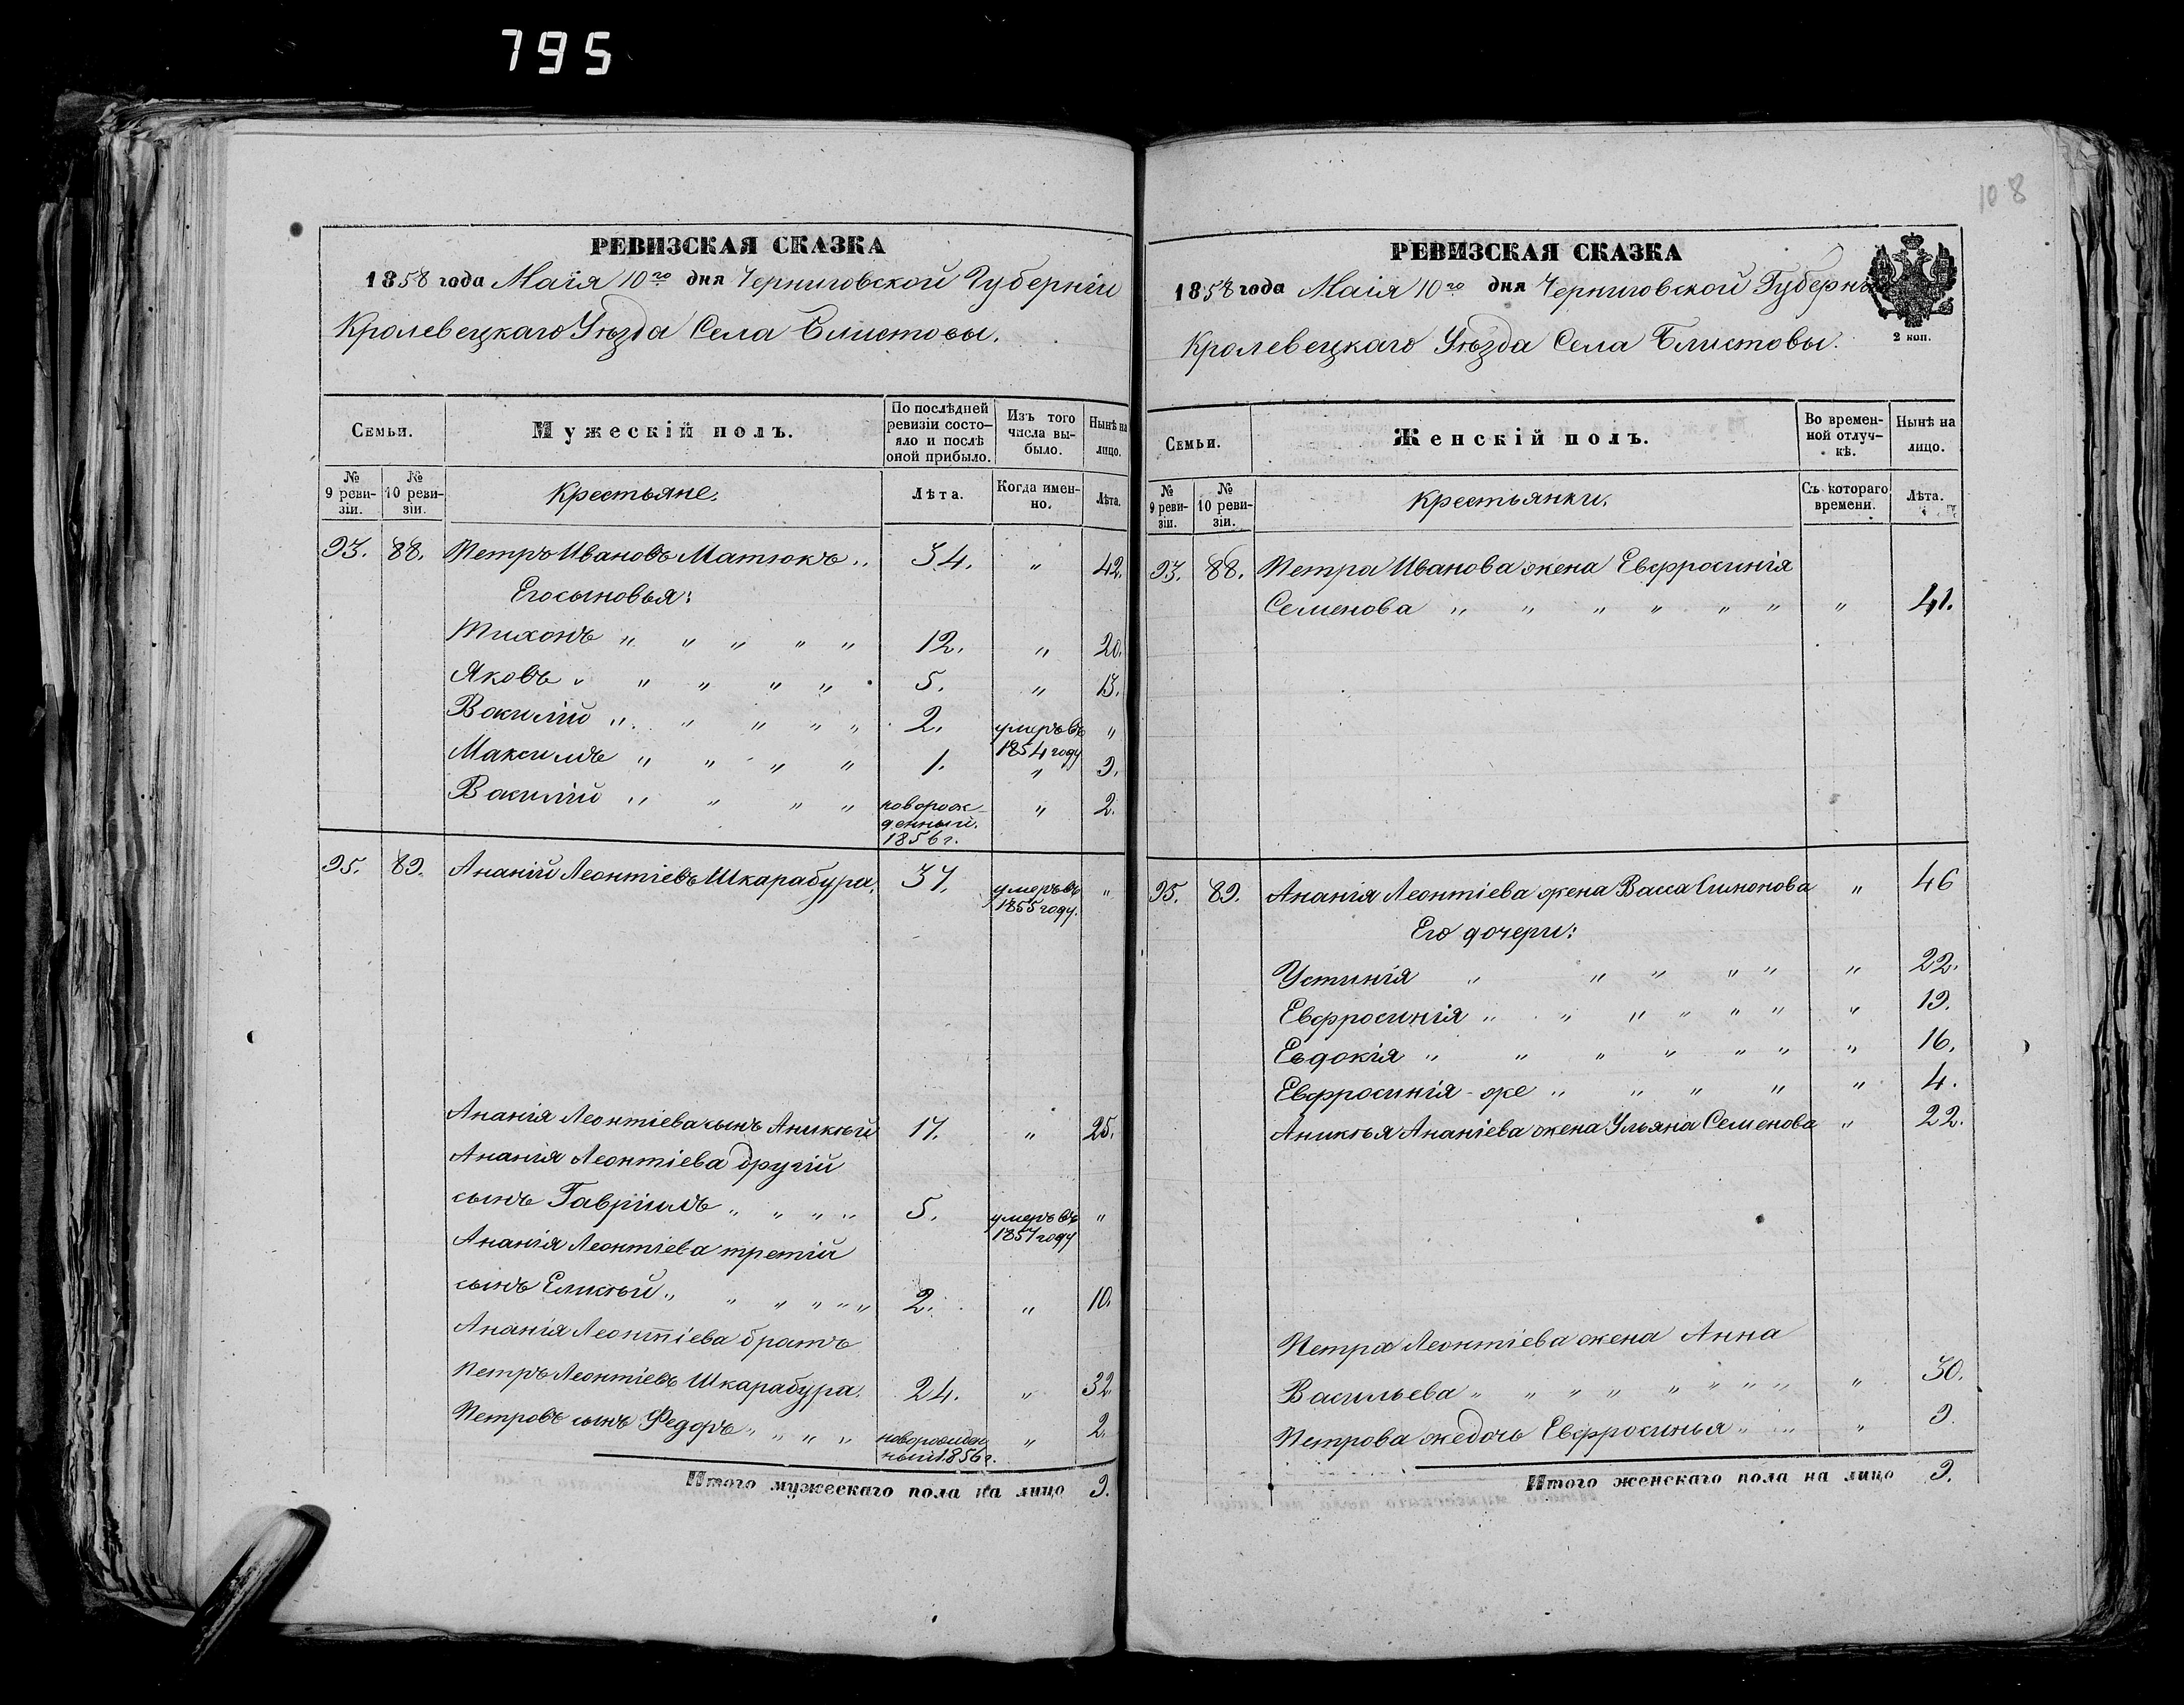 795
108
РЕВИЗСКАЯ СКАЗКА
1858 года Маія 10го дня Черниговской Губерніи
Кролевецкаго Уѣзда Села Блистовы.
Семьи.
Мужескій полъ.
По послѣдней ревизіи состояло и послѣ оной прибыло.
Изъ того числа выбыло.
Нынѣ на лицо.
№ 9 ревизіи.
№ 10 ревизіи.
Крестьяне.
Лѣта.
Когда именно.
Лѣта.
93. 88. Петръ Ивановъ Матюкъ „ 34. „ 42.
Его сыновья:
Тихонъ „ „ „ „ „ 12. „ 20.
Яковъ „ „ „ „ „ 5. „ 13.
Василій „ „ „ „ „ 2. умеръ въ 1854 году „
Максимъ „ „ „ „ 1. „ 9.
Василій „ „ „ „ новорожденный. 1856 г. „ 2.
95. 89. Ананій Леонтіевъ Шкарабура. 37. умеръ въ 1855 году. „
Ананія Леонтіева сынъ Аникѣй 17. „ 25.
Ананія Леонтіева другій
сынъ Гавріилъ „ „ „ „ 5. умеръ въ 1857 году „
Ананія Леонтіева третій
сынъ Еликѣй „ „ „ „ „ „ 2. „ 10.
Ананія Леонтіева братъ
Петръ Леонтіевъ Шкарабура. 24. „ 32.
Петровъ сынъ Федоръ „ „ „ „ новорожденный 1856 г. „ 2.
Итого мужескаго пола на лицо 9.
РЕВИЗСКАЯ СКАЗКА
1858 года Маія 10го дня Черниговской Губерніи
Кролевецкаго Уѣзда Села Блистовы.
2 коп.
Семьи.
Женскій полъ.
Во временной отлучкѣ.
Нынѣ на лицо.
№ 9 ревизіи.
№ 10 ревизіи.
Крестьянки.
Съ котораго времени.
Лѣта.
93. 88. Петра Иванова жена Евфросинія
Семенова „ „ „ „ „ „ „ 41.
95. 89. Ананія Леонтіева жена Васса Симонова „ 46
Его дочери:
Устинія „ „ „ „ „ „ 22.
Евфросинія „ „ „ „ „ „ „ 19.
Евдокія „ „ „ „ „ „ „ 16.
Евфросинія-же „ „ „ „ „ 4.
Аникѣя Ананіева жена Ульяна Семенова „ 22.
Петра Леонтіева жена Анна
Васильева „ „ „ „ „ „ „ „ „ 30.
Петрова же дочь Евфросинья „ „ „ 9.
Итого женскаго пола на лицо 9.